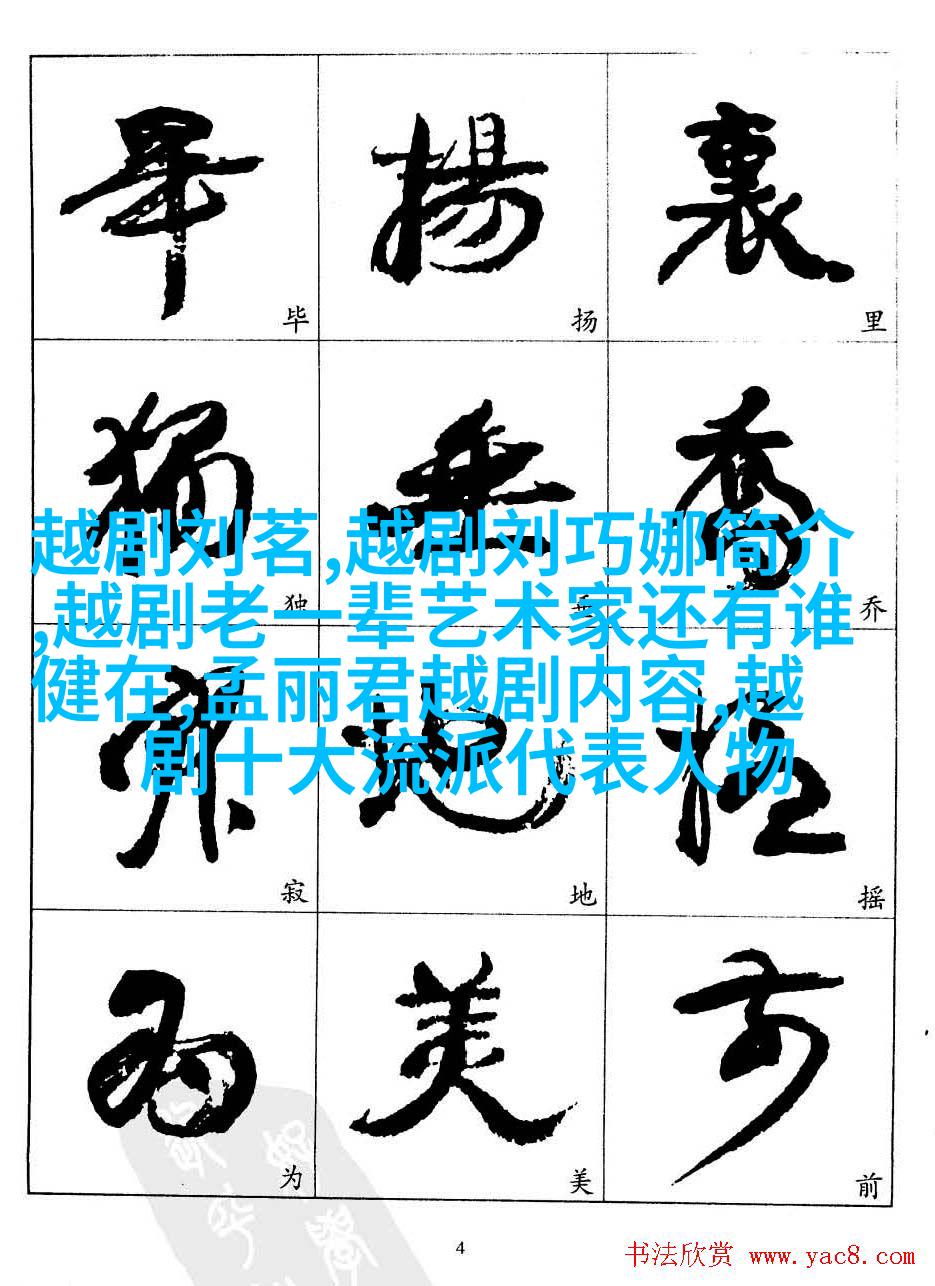 畢 揚 裏
毕 扬 里
獨 垂 喬
独 垂 乔
越剧刘茗,越剧刘巧娜简介
,越剧老一辈艺术家还有谁
健在,孟丽君越剧内容,越
剧十大流派代表人物
寂 地 搖
寂 地 摇
为 美 前
为 美 前
4
书法欣赏 www.yac8.com